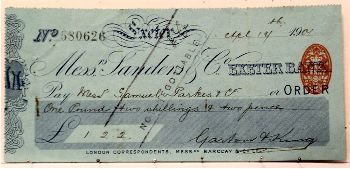 No 680626 Exeter Sept 14th 1901
NOT NEGOTIABLE
Messrs Sanders & Co. EXETER BANK
Pay Messrs Samuel Parkes & Co or ORDER
One Pound & two shillings & two pence
£ 1 2 2 Garton & King
LONDON CORRESPONDENTS, MESSRS BARCLAY &